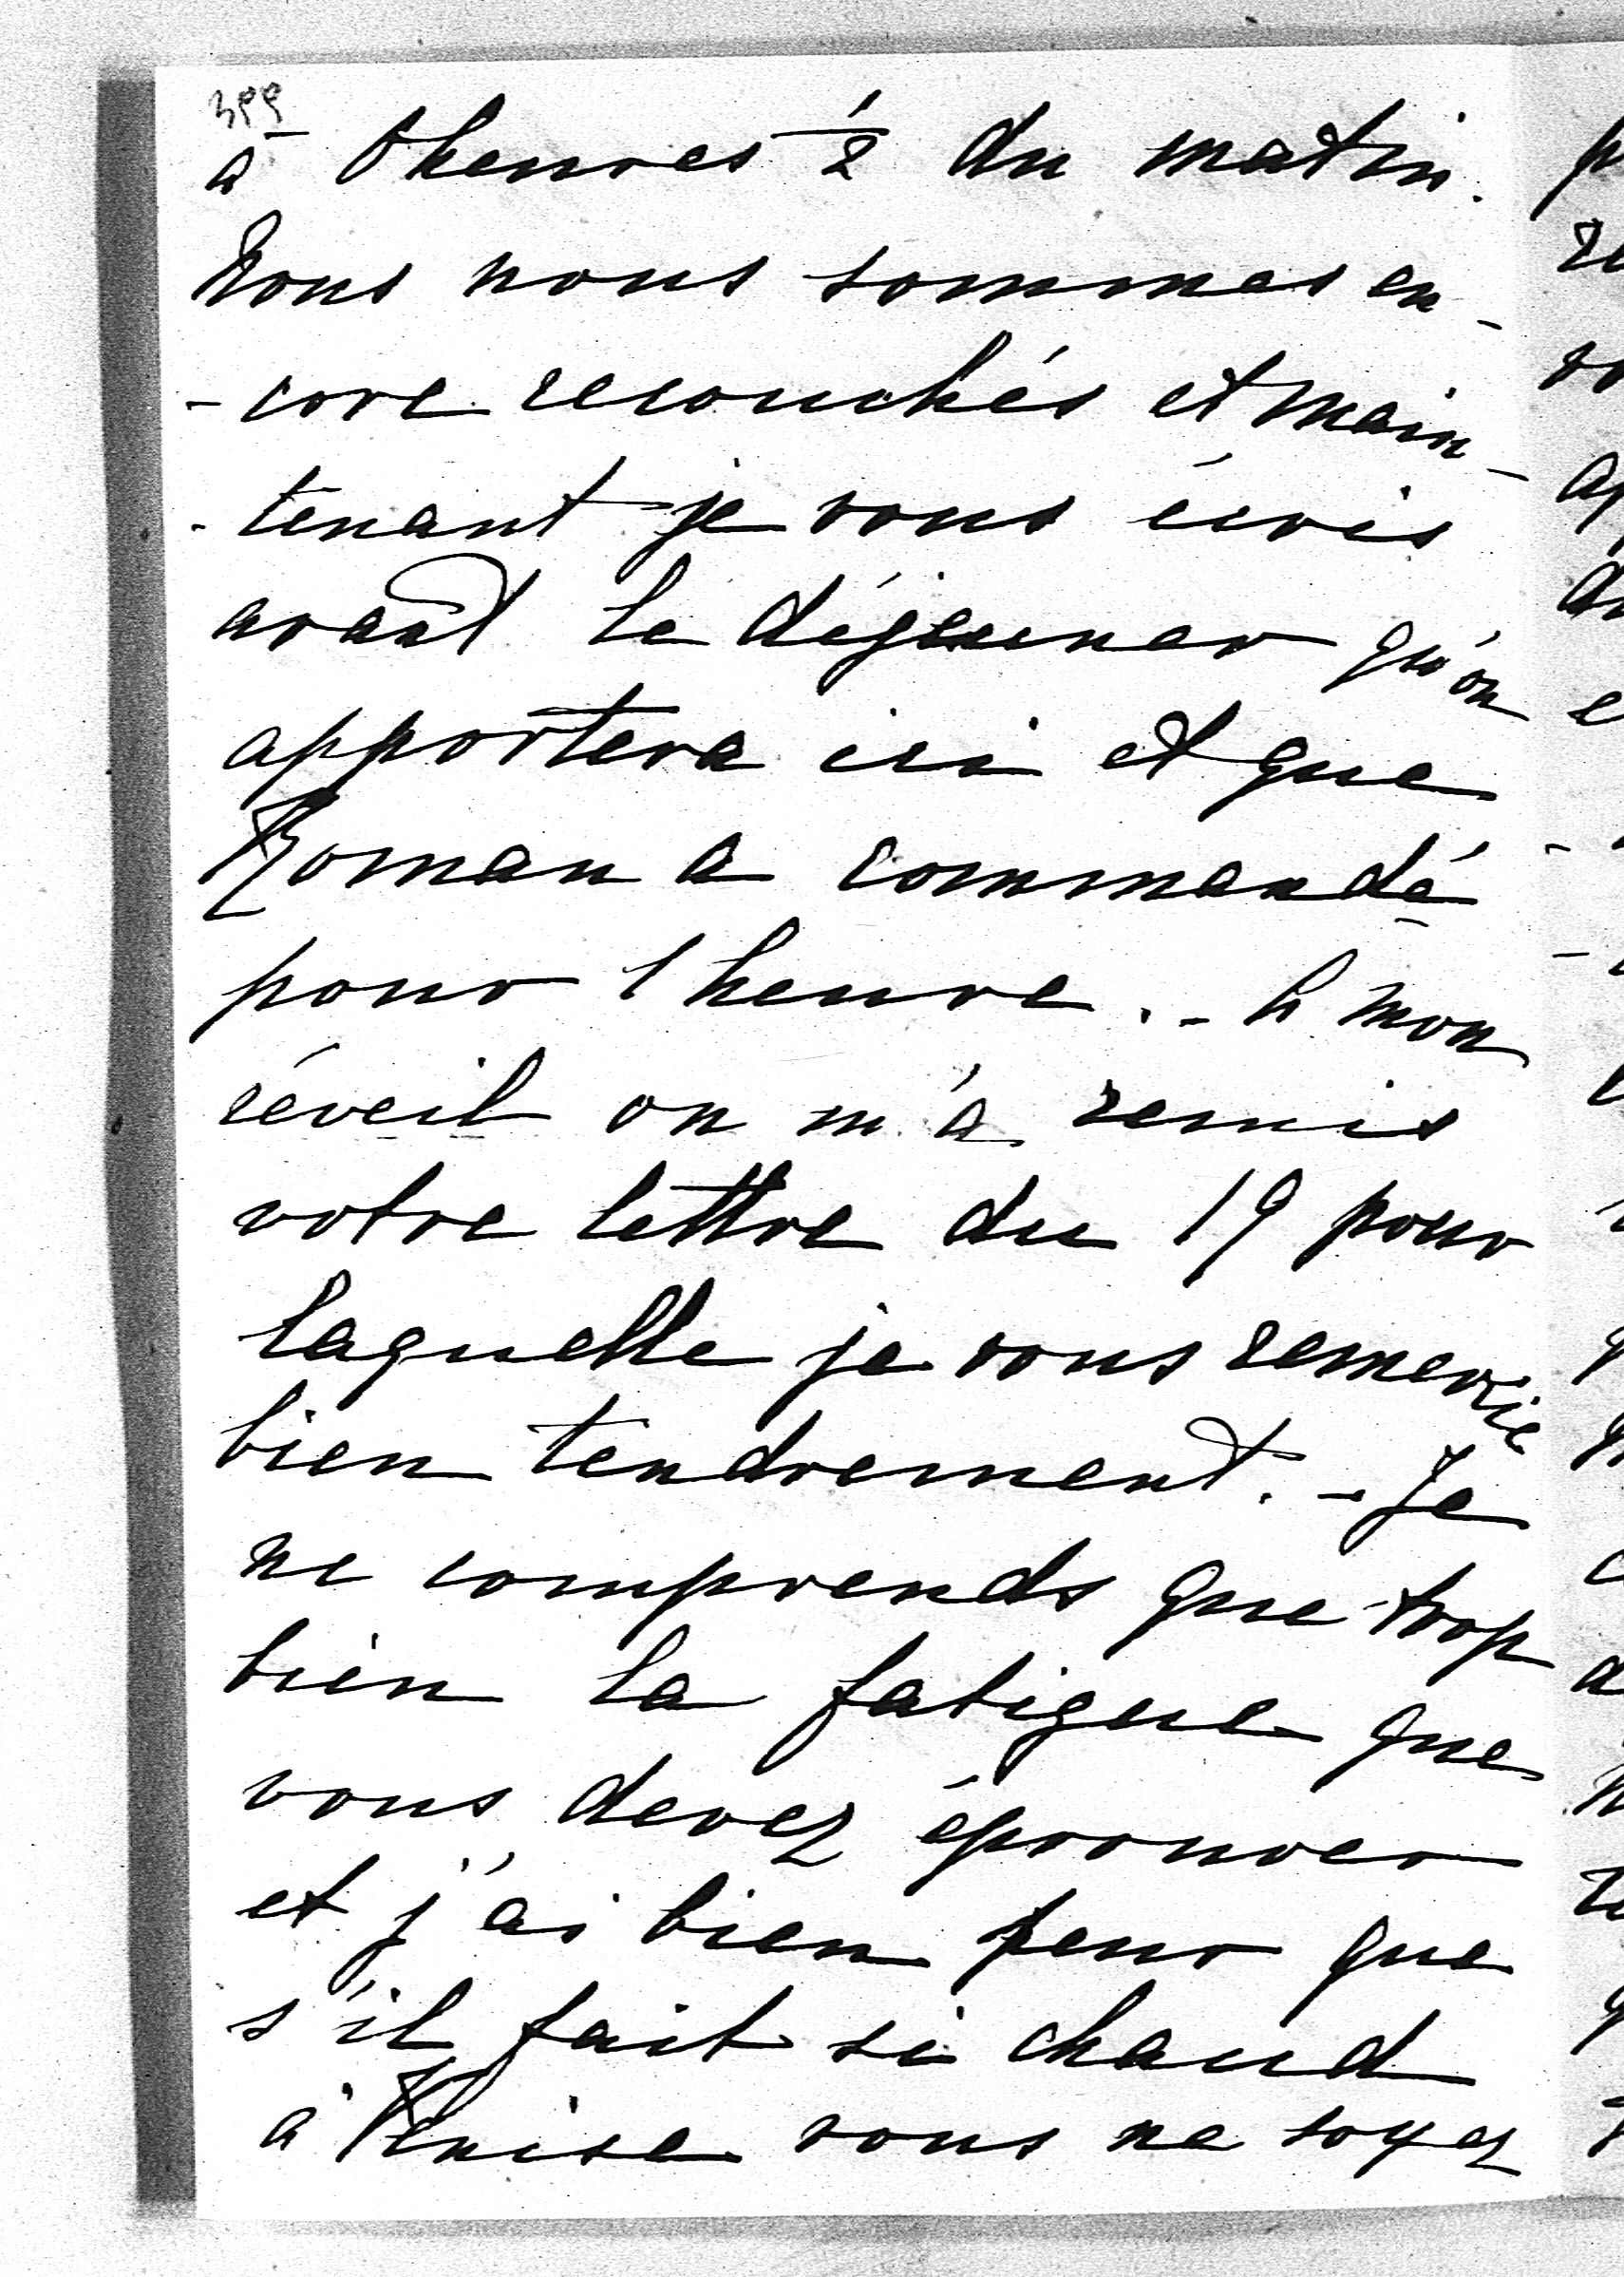 399
à 6 heures ½ du matin.
Nous nous sommes en-
-core recouchés et main-
-tenant je vous écris
avant le déjeuner qu'on
apportera ici et que
Roman a commandé
pour 1 heure. - A mon
réveil on m'a remis
votre lettre du 19 pour
laquelle je vous remercie
bien tendrement. - Je
ne comprends que trop
bien la fatigue que
vous devez éprouver
et j'ai bien peur que
s'il fait si chaud
à Venise vous ne soyez